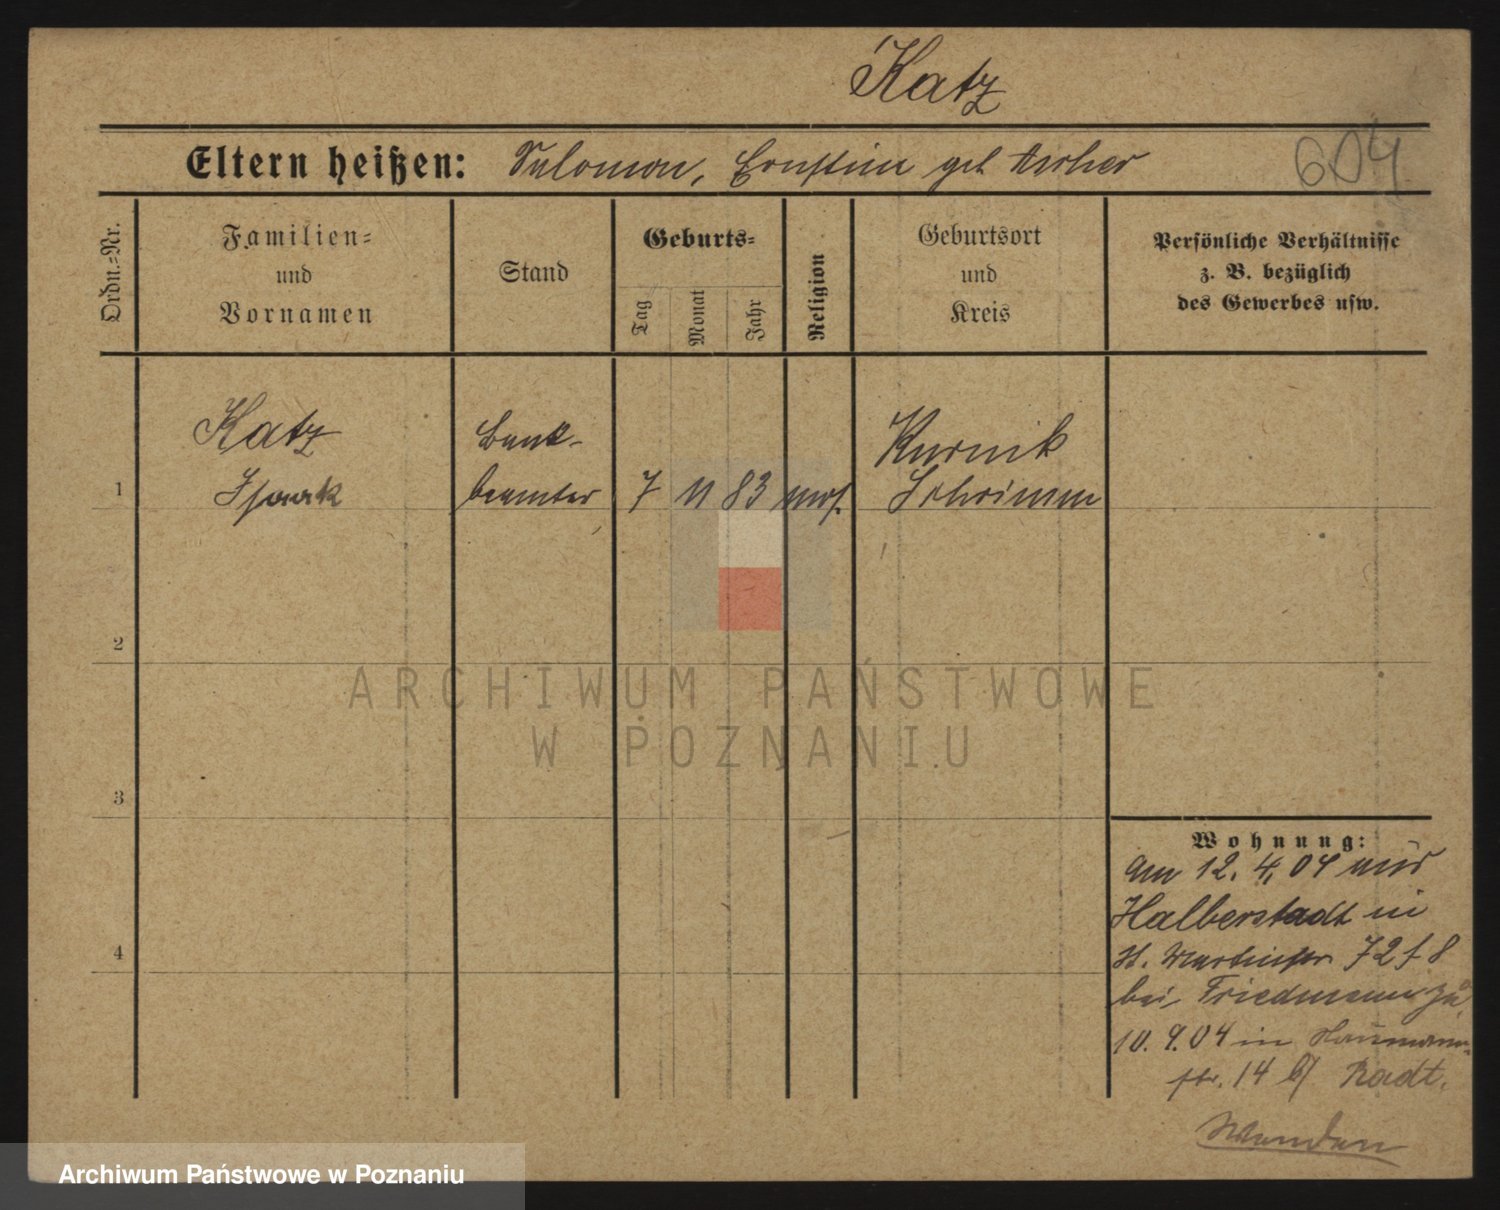 Katz
Eltern heißen: Salomon, Ernstine geb Ascher
604
Ordn.-Nr.
Familien-
und
Vornamen
Stand
Geburts-
Tag
Monat
Jahr
Religion
Geburtsort
und
Kreis
Persönliche Verhältnisse
z. B. bezüglich
des Gewerbes usw.
1
Katz
Isaak
Bank-
beamter
7 11 83 mos.
Kurnik
Schrimm
2
ARCHIWUM PAŃSTWOWE
W POZNANIU
3
Wohnung:
am 12. 4. 04 aus
Halberstadt in
St. Martinstr 72
bei Friedmann zu
10. 9. 04 in
str. 14 b/ Radt.
4
Wenden
Archiwum Państwowe w Poznaniu